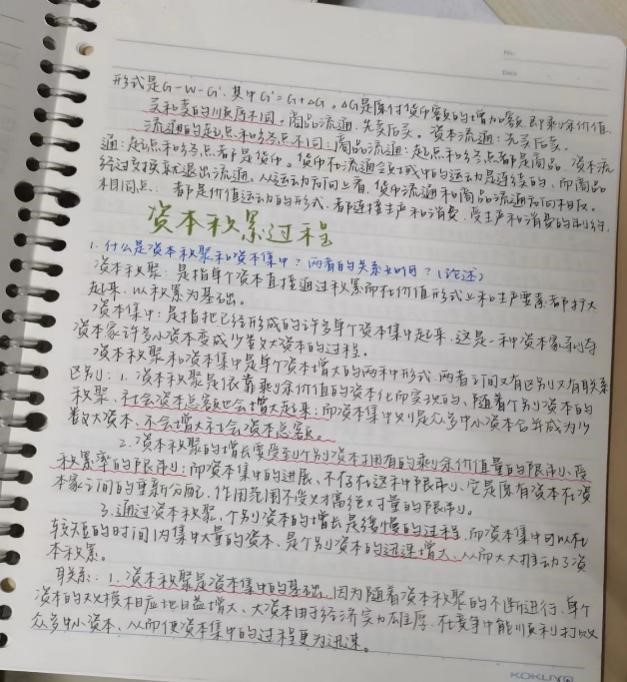 No.
Date
形式是G-W-G'.其中G'=G+△G。△G是原付货币额的增加额.即剩余价值.
买和卖的顺序不同。商品流通:先卖后买。资本流通:先买后卖。
流通的起点和终点不同:商品流通:起点和终点都是商品.资本流
通:起点和终点都是货币。货币在流通全过程中的运动是连续的,而商品
经过交换就退出流通。从运动方向上看,货币流通和商品流通方向相反。
相同点: 都是价值运动的形式,都连接生产和消费,受生产和消费的制约.
资本积累过程
1.什么是资本积聚和资本集中?两者的关系如何?(论述)
资本积聚:是指单个资本直接通过积累而在价值形式上和生产要素都扩大
起来.以积累为基础。
资本集中:是指把已经形成的许多单个资本集中起来.这是一种资本家剥夺
资本家许多小资本变成少数大资本的过程。
资本积聚和资本集中是单个资本增大的两种形式.两者之间又有区别又有联系
区别:1.资本积聚是依靠剩余价值的资本化而实现的,随着个别资本的
积聚、社会资本总额也会增大起来;而资本集中则是众多中小资本合并成为少
数大资本,不会增大社会资本总额。
2.资本积聚的增长要受到个别资本拥有的剩余价值量的限制、受
积累率的限制;而资本集中的进展、不存在这种限制、它是原有资本在资
本家之间的重新分配.作用范围不受财富绝对量的限制。
3.通过资本积聚,个别资本的增长是缓慢的过程,而资本集中可以在
较短的时间内集中大量的资本、是个别资本的迅速增大、从而大大推动了资
本积累。
联系:1.资本积聚是资本集中的基础,因为随着资本积聚的不断进行,单个
资本的规模相应地日益增大、大资本由于经济实力雄厚,在竞争中能顺利打败
众多中小资本、从而使资本集中的过程更为迅速。
KOKUYO